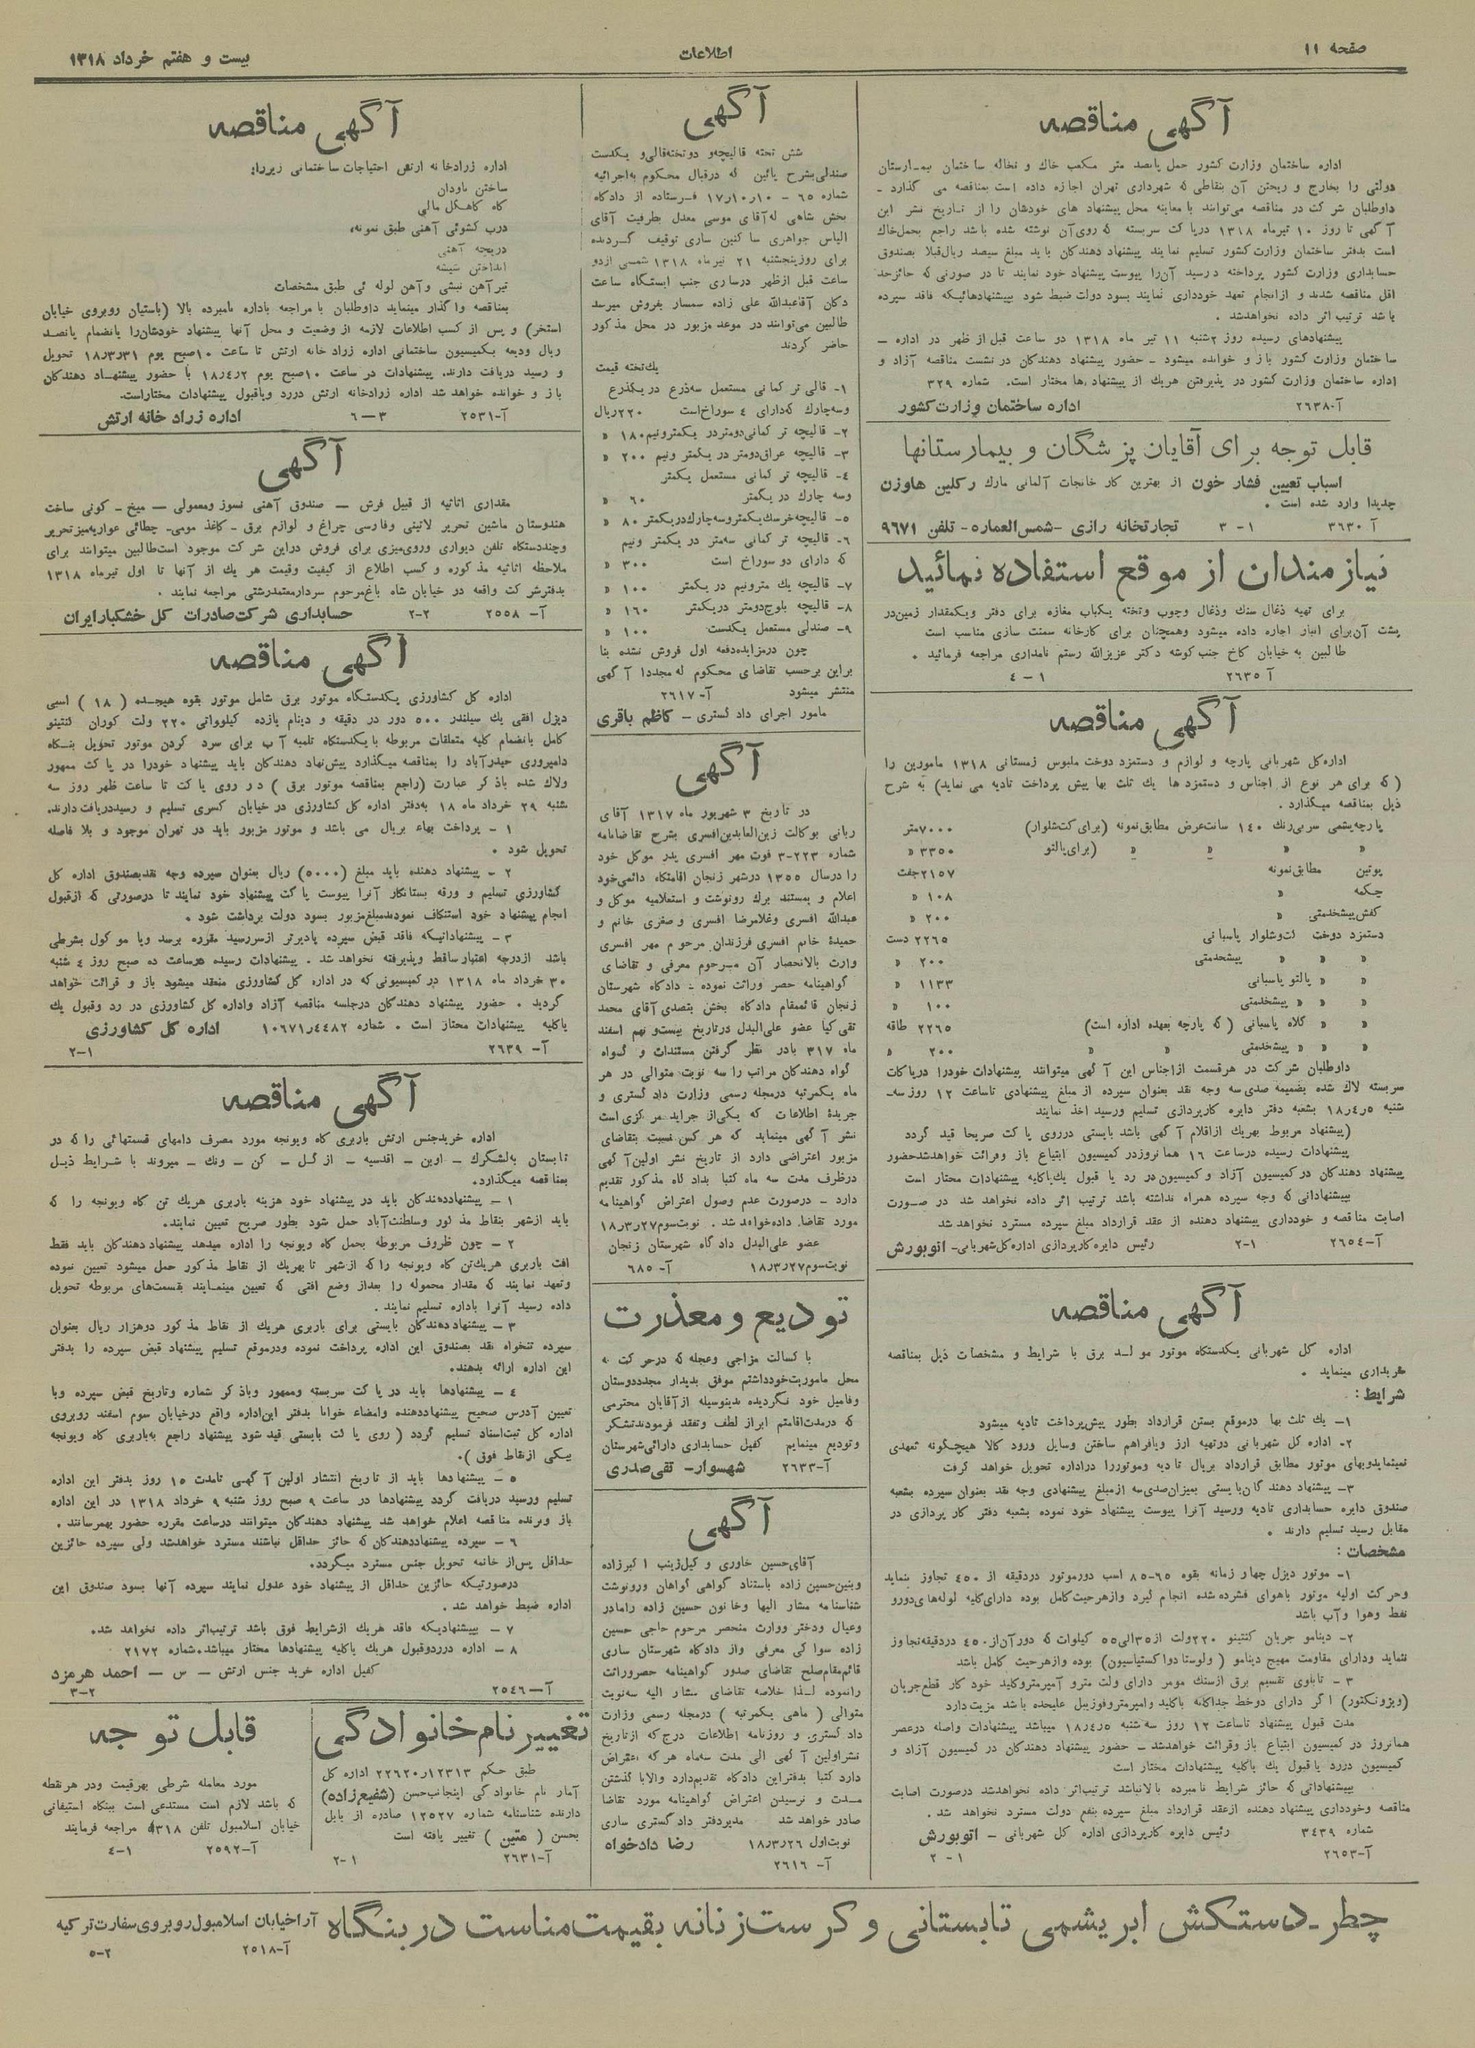 صفحه ۱۱
اطلاعات
بیست و هفتم خرداد ۱۳۱۸
آگهی مناقصه
اداره ساختمان وزارت کشور حمل پانصد متر مکعب خاك و نخاله ساختمان بیمارستان
دولتی را بخارج و ریختن آن بنقاطی که شهرداری تهران اجازه داده است بمناقصه می گذارد -
داوطلبان شرکت در مناقصه می‌توانند با معاینه محل پیشنهاد های خودشان را از تاریخ نشر این
آگهی تا روز ۱۰ تیرماه ۱۳۱۸ در پاکت سربسته که روی آن نوشته شده باشد راجع بحمل خاك
است بدفتر ساختمان وزارت کشور تسلیم نمایند پیشنهاد دهندکان باید مبلغ سیصد ریال قبلا بصندوق
حسابداری وزارت کشور پرداخته و رسید آن را پیوست پیشنهاد خود نمایند تا در صورتی که حائز حد
اقل مناقصه شدند و از انجام تعهد خودداری نمایند بسود دولت ضبط شود پیشنهادهائیکه فاقد سپرده
باشد ترتیب اثر داده نخواهد شد .
پیشنهادهای رسیده روز ۲شنبه ۱۱ تیر ماه ۱۳۱۸ دو ساعت قبل از ظهر در اداره -
ساختمان وزارت کشور باز و خوانده میشود - حضور پیشنهاد دهندکان در نشست مناقصه آزاد و
اداره ساختمان وزارت کشور در پذیرفتن هریك از پیشنهاد ها مختار است. شماره ۳۲۹
آ-۲۶۳۸ اداره ساختمان وزارت کشور
قابل توجه برای آقایان پزشگان و بیمارستانها
اسباب تعیین فشار خون از بهترین کارخانجات آلمانی مارك رکلین هاوزن
جدیدا وارد شده است .
آ ۳۶۳۰ ۱- ۳ تجارتخانه رازی -شمس العماره- تلفن ۹۶۷۱
نیازمندان از موقع استفاده نمائید
برای تهیه ذغال سنك وذغال وچوب وتخته یکباب مغازه برای دفتر ویکمقدار زمین در
پشت آن برای انبار اجاره داده میشود وهمچنان برای کارخانه سمنت سازی مناسب است
طالبین به خیابان کاخ جنب کوشه دکتر عزیزالله رستم نامداری مراجعه فرمائید .
آ ۲۶۳۵ ۱ - ۴
آگهی مناقصه
اداره کل شهربانی پارچه و لوازم و دستمزد دوخت ملبوس زمستانی ۱۳۱۸ مامورین را
( که برای هر نوع از اجناس و دستمزد ها یك ثلث بها پیش پرداخت تادیه می نماید) به شرح
ذیل بمناقصه میگذارد .
پارچه پشمی سربی رنك ۱۴۰ سانت عرض مطابق نمونه (برای کت شلوار) ۷۰۰۰متر
« « « « (برای پالتو ۳۳۵۰ «
پوتین مطابق نمونه ۲۱۵۷جفت
چکمه « ۱۰۸ «
کفش پیشخدمتی « ۲۰۰ «
دستمزد دوخت کت وشلوار پاسبانی ۲۲۶۵ دست
« « « پیشخدمتی ۲۰۰ «
« « پالتو پاسبانی ۱۱۳۳ «
« « « پیشخدمتی ۱۰۰ «
« « کلاه پاسبانی ( که پارچه بعهده اداره است) ۲۲۶۵ طاقه
« « « پیشخدمتی « « ۲۰۰ «
داوطلبان شرکت در هرقسمت از اجناس این آگهی میتوانند پیشنهادات خودرا در پاکات
سربسته لاك شده بضمیمه صدی سه وجه نقد بعنوان سپرده از مبلغ پیشنهادی تا ساعت ۱۲ روز سه-
شنبه ۱۸ر۴ر۵ بشعبه دفتر دایره کارپردازی تسلیم ورسید اخذ نمایند
(پیشنهاد مربوط بهریك از اقلام آگهی باشد بایستی در روی پاکت صریحا قید گردد
پیشنهادات رسیده در ساعت ۱۶ همان روز در کمیسیون ابتیاع باز و قرائت خواهد شد حضور
پیشنهاد دهندکان در کمیسیون آزاد و کمیسیون در رد یا قبول یك یا کلیه پیشنهادات مختار است
پیشنهاداتی که وجه سپرده همراه نداشته باشد ترتیب اثر داده نخواهد شد در صورت
اصابت مناقصه و خودداری پیشنهاد دهنده از عقد قرارداد مبلغ سپرده مسترد نخواهد شد
آ-۲۶۵۴ ۱-۲ رئیس دایره کارپردازی اداره کل شهربانی- اتوبورش
آگهی مناقصه
اداره کل شهربانی یکدستگاه موتور مولد برق با شرایط و مشخصات ذیل بمناقصه
خریداری مینماید .
شرایط :
۱- یك ثلث بها در موقع بستن قرارداد بطور پیش پرداخت تادیه میشود
۲- اداره کل شهربانی در تهیه ارز ویا فراهم ساختن وسایل ورود کالا هیچگونه تعهدی
نمینماید وبهای موتور مطابق قرارداد بریال تادیه وموتوررا دراداره تحویل خواهد گرفت
۳- پیشنهاد دهندگان بایستی بمیزان صدی سه از مبلغ پیشنهادی وجه نقد بعنوان سپرده بشعبه
صندوق دایره حسابداری تادیه ورسید آنرا پیوست پیشنهاد خود نموده بشعبه دفتر کارپردازی در
مقابل رسید تسلیم دارند .
مشخصات :
۱- موتور دیزل چهار زمانه بقوه ۶۵-۸۵ اسب دور موتور در دقیقه از ۴۵۰ تجاوز ننماید
وحرکت اولیه موتور باهوای فشرده شده انجام گیرد واز هر حیث کامل بوده دارای کلیه لوله های دورو
نفط وهوا وآب باشد
۲- دینامو جریان کنتینو ۲۲۰ ولت از ۳۵ الی ۵۵ کیلوات که دور آن از ۴۵۰ در دقیقه تجاوز
ننماید ودارای مقاومت مهیج دینامو ( ولوستا دو اکستیاسیون) بوده واز هر حیث کامل باشد
۳ - تابلوی تقسیم برق از سنك مرمر دارای ولت مترو آمپر متر و کلید خود کار قطع جریان
(دیژونکتور) اگر دارای دو خط جداگانه با کلید وامپرمتر وفوزیبل علیحده باشد مزیت دارد
مدت قبول پیشنهاد تا ساعت ۱۲ روز سه شنبه ۱۸ر۴ر۵ میباشد پیشنهادات واصله در عصر
همانروز در کمیسیون ابتیاع باز وقرائت خواهد شد - حضور پیشنهاد دهندکان در کمیسیون آزاد و
کمیسیون در رد یا قبول یك یا کلیه پیشنهادات مختار است
پیشنهاداتی که حائز شرایط نامبرده بالا نباشد ترتیب اثر داده نخواهد شد در صورت اصابت
مناقصه وخودداری پیشنهاد دهنده از عقد قرارداد مبلغ سپرده بنفع دولت مسترد نخواهد شد .
شماره ۳۴۳۹ رئیس دایره کارپردازی اداره کل شهربانی - اتوبورش
آ-۲۶۵۳ ۱- ۲
آگهی
شش تخته قالیچه و دو تخته قالی و یکدست
صندلی بشرح پائین که در قبال محکوم به اجرائیه
شماره ۶۵ - ۱۷ر۱۰ر۱۰ فرستاده از دادگاه
بخش شاهی له آقای موسی معدل بطرفیت آقای
الیاس جواهری ساکنین ساری توقیف گردیده
برای روز پنجشنبه ۲۱ تیر ماه ۱۳۱۸ شمسی از دو
ساعت قبل از ظهر در ساری جنب ایستگاه ساعت
دکان آقا عبدالله علی زاده سمسار بفروش میرسد
طالبین می توانند در موعد مزبور در محل مذکور
حاضر گردند
یك تخته قیمت
۱- قالی ترکمانی مستعمل سه ذرع در یکذرع
وسه چارك که دارای ۴ سوراخ است ۲۲۰ریال
۲- قالیچه ترکمانی دومتر در یکمترو نیم ۱۸۰ «
۳- قالیچه عراق دومتر در یکمتر و نیم ۲۰۰ «
۴- قالیچه ترکمانی مستعمل یکمتر
وسه چارك در یکمتر ۶۰ «
۵- قالیچه خرسك یکمتر وسه چارك در یکمتر ۸۰ «
۶- قالیچه ترکمانی سه متر در یکمتر ونیم
که دارای دو سوراخ است ۳۰۰ «
۷- قالیچه یك مترو نیم در یکمتر ۱۰۰ «
۸- قالیچه بلوچ دومتر دریکمتر ۱۶۰ «
۹- صندلی مستعمل یکدست ۱۰۰ «
چون در مزایده دفعه اول فروش نشده بنا
براین برحسب تقاضای محکوم له مجددا آگهی
منتشر میشود آ-۲۶۱۷
مامور اجرای دادگستری - کاظم باقری
آگهی
در تاریخ ۳ شهریور ماه ۱۳۱۷ آقای
ربانی بوکالت زین العابدین افسری بشرح تقاضانامه
شماره ۲۲۳-۳ فوت مهر افسری پدر موکل خود
را در سال ۱۳۵۵ در شهر زنجان اقامتگاه دائمی خود
اعلام و بمستند برك رونوشت و استعلامیه موکل و
عبدالله افسری وغلامرضا افسری و صغری خانم و
حمیدۀ خانم افسری فرزندان مرحوم مهر افسری
وارث بالانحصار آن مرحوم معرفی و تقاضای
گواهینامه حصر وراثت نموده - دادگاه شهرستان
زنجان قائممقام دادگاه بخش بتصدی آقای محمد
تقی کیا عضو علی البدل در تاریخ بیست و نهم اسفند
ماه ۳۱۷ با در نظر گرفتن مستندات و گواه
گواه دهندکان مراتب را سه نوبت متوالی در هر
ماه یکمرتبه در مجله رسمی وزارت دادگستری و
جریدۀ اطلاعات که یکی از جراید مرکزی است
نشر آگهی مینماید که هر کس نسبت بتقاضای
مزبور اعتراضی دارد از تاریخ نشر اولین آگهی
در ظرف مدت سه ماه کتبا بدادگاه مذکور تقدیم
دارد - در صورت عدم وصول اعتراض گواهینامه
مورد تقاضا داده خواهد شد . نوبت سوم ۱۸ر۳ر۲۷
عضو علی البدل دادگاه شهرستان زنجان
نوبت سوم ۱۸ر۳ر۲۷ آ-۶۸۵
تودیع و معذرت
با کسالت مزاجی وعجله که در حرکت به
محل ماموریت خود داشتم موفق بدیدار مجدد دوستان
وفامیل خود نگردیده بدینوسیله از آقایان محترمی
که در مدت اقامتم ابراز لطف وتفقد فرمودند تشکر
وتودیع مینمایم کفیل حسابداری دارائی شهرستان
آ-۲۶۳۳ شهسوار- تقی صدری
آگهی
آقای حسین خاوری وکیل زینب اکبر زاده
وبنین حسین زاده باستناد گواهی گواهان ورونوشت
شناسنامه مشار الیها وخاتون حسین زاده را مادر
وعیال ودختر ووارث منحصر مرحوم حاجی حسین
زاده سوا کی معرفی واز دادگاه شهرستان ساری
قائم مقام صلح تقاضای صدور گواهینامه حصر وراثت
را نموده لذا خلاصه تقاضای مشار الیه سه نوبت
متوالی ( ماهی یکمرتبه ) در مجله رسمی وزارت
دادگستری و روزنامه اطلاعات درج که از تاریخ
نشر اولین آگهی الی مدت سه ماه هر که اعتراض
دارد کتبا بدفتر این دادگاه تقدیم دارد والا با گذشتن
مدت و نرسیدن اعتراض گواهینامه مورد تقاضا
صادر خواهد شد مدیر دفتر دادگستری ساری
نوبت اول ۱۸ر۳ر۲۶ رضا دادخواه
آ- ۲۶۱۶
آگهی مناقصه
اداره زرادخانه ارتش احتیاجات ساختمانی زیررا:
ساختن ناودان
کاه کاهگل مالی
درب کشوئی آهنی طبق نمونه
دریچه آهنی
انداختن شیشه
تیر آهن نبشی وآهن لوله ئی طبق مشخصات
بمناقصه واگذار مینماید داوطلبان با مراجعه باداره نامبرده بالا (باستیان روبروی خیابان
استخر) و پس از کسب اطلاعات لازمه از وضعیت و محل آنها پیشنهاد خودشان را بانضمام پانصد
ریال ودیعه بکمیسیون ساختمانی اداره زراد خانه ارتش تا ساعت ۱۰صبح یوم ۱۸ر۳ر۳۱ تحویل
و رسید دریافت دارند. پیشنهادات در ساعت ۱۰صبح یوم ۱۸ر۴ر۲ با حضور پیشنهاد دهندگان
باز و خوانده خواهد شد اداره زرادخانه ارتش در رد ویا قبول پیشنهادات مختار است.
آ-۲۵۳۱ ۳-۶ اداره زراد خانه ارتش
آگهی
مقداری اثاثیه از قبیل فرش - صندوق آهنی نسوز ومعمولی - میخ - گونی ساخت
هندوستان ماشین تحریر لاتینی وفارسی چراغ و لوازم برق - کاغذ مومی- چطائی عواریه میز تحریر
وچند دستگاه تلفن دیواری ورومیزی برای فروش دراین شرکت موجود است طالبین میتوانند برای
ملاحظه اثاثیه مذکوره و کسب اطلاع از کیفیت وقیمت هر یك از آنها تا اول تیر ماه ۱۳۱۸
بدفتر شرکت واقعه در خیابان شاه باغ مرحوم سردار معتمد رشتی مراجعه نمایند .
آ- ۲۵۵۸ ۲-۲ حسابداری شرکت صادرات کل خشکبار ایران
آگهی مناقصه
اداره کل کشاورزی یکدستگاه موتور برق شامل موتور بقوه هیجده ( ۱۸ ) اسبی
دیزل افقی یك سیلندر ۵۰۰ دور در دقیقه و دینام یازده کیلوواتی ۲۲۰ ولت کوران کنتینو
کامل بانضمام کلیه متعلقات مربوطه با یکدستگاه تلمبه آب برای سرد کردن موتور تحویل بنگاه
دامپروری حیدرآباد را بمناقصه میگذارد پیشنهاد دهندکان باید پیشنهاد خودرا در پاکت ممهور
ولاك شده باذکر عبارت (راجع بمناقصه موتور برق ) در روی پاکت تا ساعت ظهر روز سه
شنبه ۲۹ خرداد ماه ۱۸ به دفتر اداره کل کشاورزی در خیابان کسری تسلیم و رسید دریافت دارند.
۱ - پرداخت بهاء بریال می باشد و موتور مزبور باید در تهران موجود و بلا فاصله
تحویل شود .
۲ - پیشنهاد دهنده باید مبلغ (۵۰۰۰) ریال بعنوان سپرده وجه نقد بصندوق اداره کل
کشاورزی تسلیم و ورقه بستانکار آنرا پیوست پاکت پیشنهاد خود نمایند تا در صورتی که از قبول
انجام پیشنهاد خود استنکاف نمودند مبلغ مزبور بسود دولت برداشت شود .
۳ - پیشنهاداتیکه فاقد قبض سپرده یا دیرتر از سررسید مقرره برسد ویا موکول بشرطی
باشد از درجه اعتبار ساقط وپذیرفته نخواهد شد . پیشنهادات رسیده در ساعت ده صبح روز ۴ شنبه
۳۰ خرداد ماه ۱۳۱۸ در کمیسیونی که در اداره کل کشاورزی منعقد میشود باز و قرائت خواهد
گردید . حضور پیشنهاد دهندکان در جلسه مناقصه آزاد واداره کل کشاورزی در رد وقبول یك
یا کلیه پیشنهادات مختار است . شماره ۱۰۶۷۱ر۴۴۸۲ اداره کل کشاورزی
آ- ۲۶۳۹ ۱-۲
آگهی مناقصه
اداره خرید جنس ارتش باربری کاه ویونجه مورد مصرف دامهای قسمتهائی را که در
تابستان به لشگرك - اوین - اقدسیه - ازگل - کن - ونك - میروند با شرایط ذیل
بمناقصه میگذارد.
۱ - پیشنهاددهندکان باید در پیشنهاد خود هزینه باربری هریك تن کاه ویونجه را که
باید از شهر بنقاط مذکور وسلطنت آباد حمل شود بطور صریح تعیین نمایند.
۲ - چون ظروف مربوطه بحمل کاه ویونجه را اداره میدهد پیشنهاد دهندکان باید فقط
افت باربری هریك تن کاه ویونجه را که از شهر تا بهریك از نقاط مذکور حمل میشود تعیین نموده
وتعهد نمایند که مقدار محموله را بعد از وضع افتی که تعیین مینمایند بقسمت های مربوطه تحویل
داده رسید آنرا باداره تسلیم نمایند.
۳ - پیشنهاد دهندکان بایستی برای باربری هریك از نقاط مذکور دوهزار ریال بعنوان
سپرده تنخواه نقد بصندوق این اداره پرداخت نموده ودر موقع تسلیم پیشنهاد قبض سپرده را بدفتر
این اداره ارائه بدهند.
۴ - پیشنهادها باید در پاکت سربسته وممهور وباذکر شماره وتاریخ قبض سپرده وبا
تعیین آدرس صحیح پیشنهاد دهنده وامضاء خوانا بدفتر این اداره واقع در خیابان سوم اسفند روبروی
اداره کل ثبت اسناد تسلیم گردد ( روی پاکت بایستی قید شود پیشنهاد راجع به باربری کاه ویونجه
بیکی از نقاط فوق ).
۵ - پیشنهادها باید از تاریخ انتشار اولین آگهی تا مدت ۱۵ روز بدفتر این اداره
تسلیم ورسید دریافت گردد پیشنهادها در ساعت ۹ صبح روز شنبه ۹ خرداد ۱۳۱۸ در این اداره
باز وبرنده مناقصه اعلام خواهد شد پیشنهاد دهندکان میتوانند در ساعت مقرره حضور بهمرسانند .
۶ - سپرده پیشنهاددهندکان که حائز حداقل نباشند مسترد خواهد شد ولی سپرده حائزین
حداقل پس از خاتمه تحویل جنس مسترد میگردد.
در صورتیکه حائزین حداقل از پیشنهاد خود عدول نمایند سپرده آنها بسود صندوق این
اداره ضبط خواهد شد .
۷ - پیشنهادیکه فاقد هریك از شرایط فوق باشد ترتیب اثر داده نخواهد شد.
۸ - اداره در رد وقبول هریك یا کلیه پیشنهادها مختار میباشد. شماره ۲۱۷۲
کفیل اداره خرید جنس ارتش - س - احمد هرمزد
آ-۲۵۴۶ ۲-۳
تغییر نام خانوادگی
طبق حکم ۱۲۳۱۳ر۲۲۶۲۰ اداره کل
آمار نام خانوادگی اینجانب حسن (شفیع زاده)
دارنده شناسنامه شماره ۱۲۵۲۷ صادره از بابل
بحسن ( متین ) تغییر یافته است
آ-۲۶۳۱ ۱-۲
قابل توجه
مورد معامله شرطی بهر قیمت ودر هر نقطه
که باشد لازم است مستدعی است ببنگاه استیفانی
خیابان اسلامبول تلفن مراجعه فرمایند
آ-۲۵۹۲ ۱-۴
چطر-دستکش ابریشمی تابستانی و کرست زنانه بقیمت مناست در بنگاه آرا خیابان اسلامبول روبروی سفارت ترکیه
آ-۲۵۱۸ ۲-۵